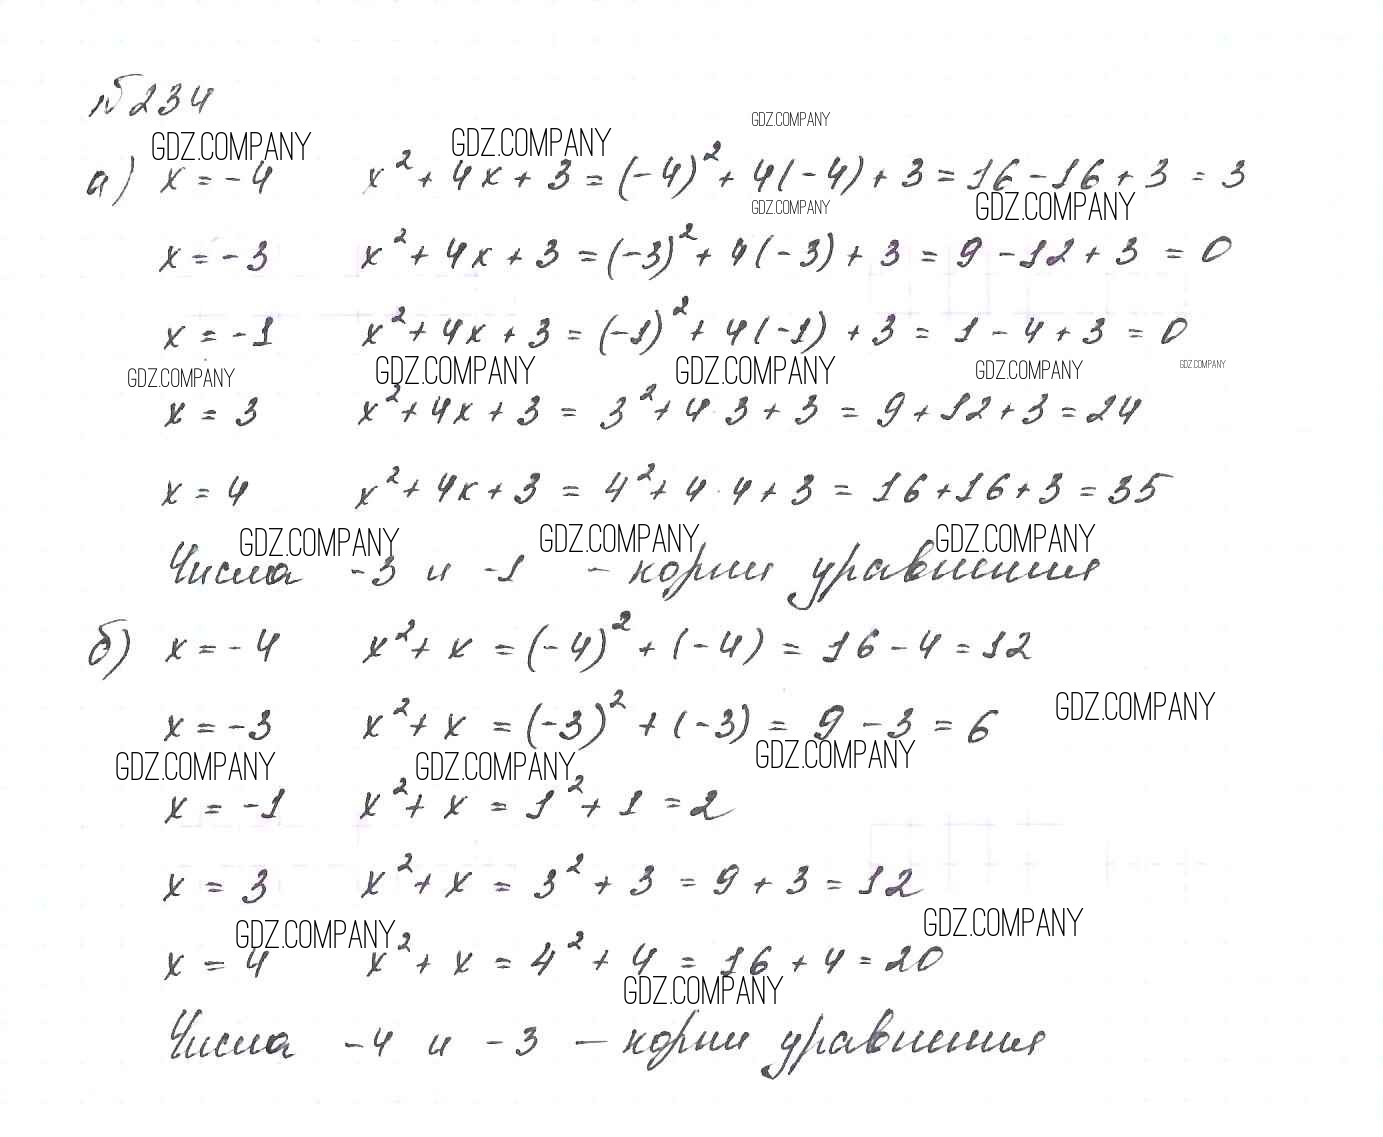 № 234
GDZ.COMPANY GDZ.COMPANY GDZ.COMPANY
а) x = -4 x² + 4x + 3 = (-4)² + 4(-4) + 3 = 16 - 16 + 3 = 3
GDZ.COMPANY GDZ.COMPANY
x = -3 x² + 4x + 3 = (-3)² + 4(-3) + 3 = 9 - 12 + 3 = 0
x = -1 x² + 4x + 3 = (-1)² + 4(-1) + 3 = 1 - 4 + 3 = 0
GDZ.COMPANY GDZ.COMPANY GDZ.COMPANY GDZ.COMPANY GDZ.COMPANY
x = 3 x² + 4x + 3 = 3² + 4·3 + 3 = 9 + 12 + 3 = 24
x = 4 x² + 4x + 3 = 4² + 4·4 + 3 = 16 + 16 + 3 = 35
GDZ.COMPANY GDZ.COMPANY GDZ.COMPANY
Числа -3 и -1 - корни уравнения
б) x = -4 x² + x = (-4)² + (-4) = 16 - 4 = 12
x = -3 x² + x = (-3)² + (-3) = 9 - 3 = 6 GDZ.COMPANY
GDZ.COMPANY GDZ.COMPANY GDZ.COMPANY
x = -1 x² + x = 1² + 1 = 2
x = 3 x² + x = 3² + 3 = 9 + 3 = 12
GDZ.COMPANY GDZ.COMPANY
x = 4 x² + x = 4² + 4 = 16 + 4 = 20
GDZ.COMPANY
Числа -4 и -3 — корни уравнения